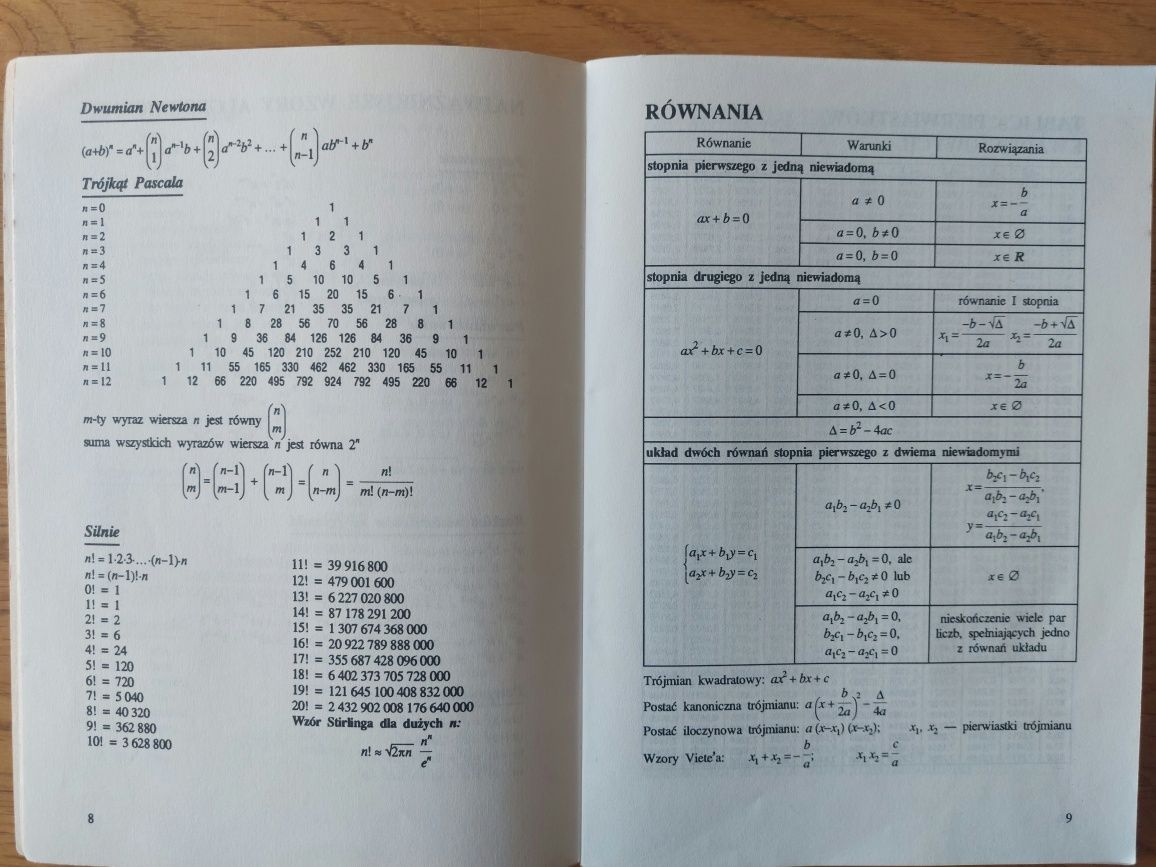 Dwumian Newtona
(a+b)ⁿ = aⁿ + (n 1) aⁿ⁻¹b + (n 2) aⁿ⁻²b² + ... + (n n−1) abⁿ⁻¹ + bⁿ
Trójkąt Pascala
n=0 1
n=1 1 1
n=2 1 2 1
n=3 1 3 3 1
n=4 1 4 6 4 1
n=5 1 5 10 10 5 1
n=6 1 6 15 20 15 6 1
n=7 1 7 21 35 35 21 7 1
n=8 1 8 28 56 70 56 28 8 1
n=9 1 9 36 84 126 126 84 36 9 1
n=10 1 10 45 120 210 252 210 120 45 10 1
n=11 1 11 55 165 330 462 462 330 165 55 11 1
n=12 1 12 66 220 495 792 924 792 495 220 66 12 1
m-ty wyraz wiersza n jest równy (n m)
suma wszystkich wyrazów wiersza n jest równa 2ⁿ
(n m) = (n−1 m−1) + (n−1 m) = (n n−m) = n! / m! (n−m)!
Silnie
n! = 1·2·3·...·(n−1)·n
n! = (n−1)!·n
0! = 1
1! = 1
2! = 2
3! = 6
4! = 24
5! = 120
6! = 720
7! = 5 040
8! = 40 320
9! = 362 880
10! = 3 628 800
11! = 39 916 800
12! = 479 001 600
13! = 6 227 020 800
14! = 87 178 291 200
15! = 1 307 674 368 000
16! = 20 922 789 888 000
17! = 355 687 428 096 000
18! = 6 402 373 705 728 000
19! = 121 645 100 408 832 000
20! = 2 432 902 008 176 640 000
Wzór Stirlinga dla dużych n:
n! ≈ √2πn nⁿ / eⁿ
8
RÓWNANIA
Równanie Warunki Rozwiązania
stopnia pierwszego z jedną niewiadomą
ax + b = 0
a ≠ 0 x = − b/a
a = 0, b ≠ 0 x ∈ ∅
a = 0, b = 0 x ∈ R
stopnia drugiego z jedną niewiadomą
ax² + bx + c = 0
a = 0 równanie I stopnia
a ≠ 0, Δ > 0 x₁ = −b − √Δ / 2a x₂ = −b + √Δ / 2a
a ≠ 0, Δ = 0 x = − b/2a
a ≠ 0, Δ < 0 x ∈ ∅
Δ = b² − 4ac
układ dwóch równań stopnia pierwszego z dwiema niewiadomymi
{a₁x + b₁y = c₁
a₂x + b₂y = c₂
a₁b₂ − a₂b₁ ≠ 0
x = b₂c₁ − b₁c₂ / a₁b₂ − a₂b₁,
y = a₁c₂ − a₂c₁ / a₁b₂ − a₂b₁
a₁b₂ − a₂b₁ = 0, ale
b₂c₁ − b₁c₂ ≠ 0 lub
a₁c₂ − a₂c₁ ≠ 0
x ∈ ∅
a₁b₂ − a₂b₁ = 0,
b₂c₁ − b₁c₂ = 0,
a₁c₂ − a₂c₁ = 0
nieskończenie wiele par
liczb, spełniających jedno
z równań układu
Trójmian kwadratowy: ax² + bx + c
Postać kanoniczna trójmianu: a (x + b/2a)² − Δ/4a
Postać iloczynowa trójmianu: a (x−x₁) (x−x₂); x₁, x₂ — pierwiastki trójmianu
Wzory Viete'a: x₁ + x₂ = − b/a; x₁ x₂ = c/a
9